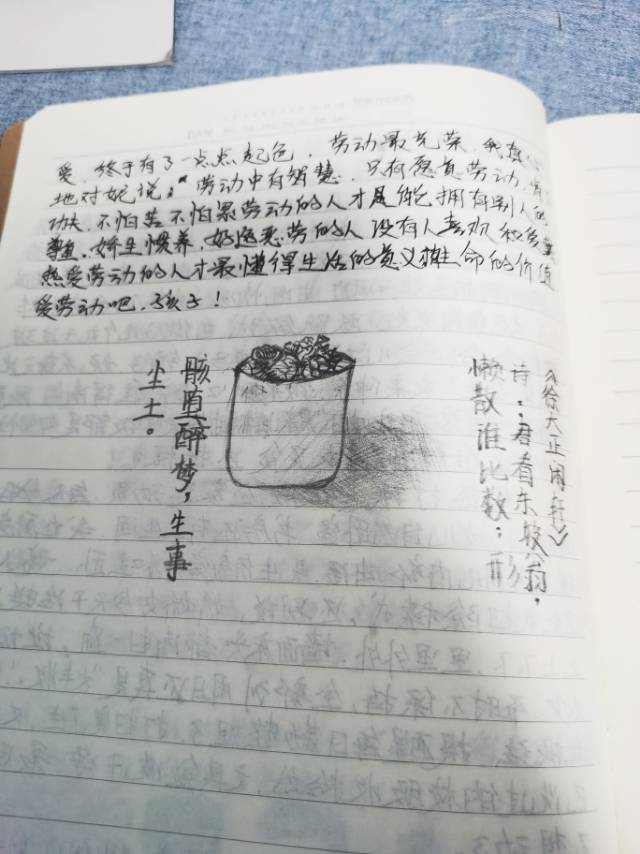 爱，终于有了一点点起色，劳动最光荣，我
地对她说：“劳动中有智慧，只有愿意劳动，
功夫，不怕苦不怕累劳动的人才是能拥有别人的
尊重。娇生惯养、好逸恶劳的人没有人喜欢
热爱劳动的人才最懂得生活的意义和生命的价值
爱劳动吧，孩子！
《徐大正闲轩》
诗：君看东坡翁，
懒散谁比数；形
骸堕醉梦，生事
尘土。